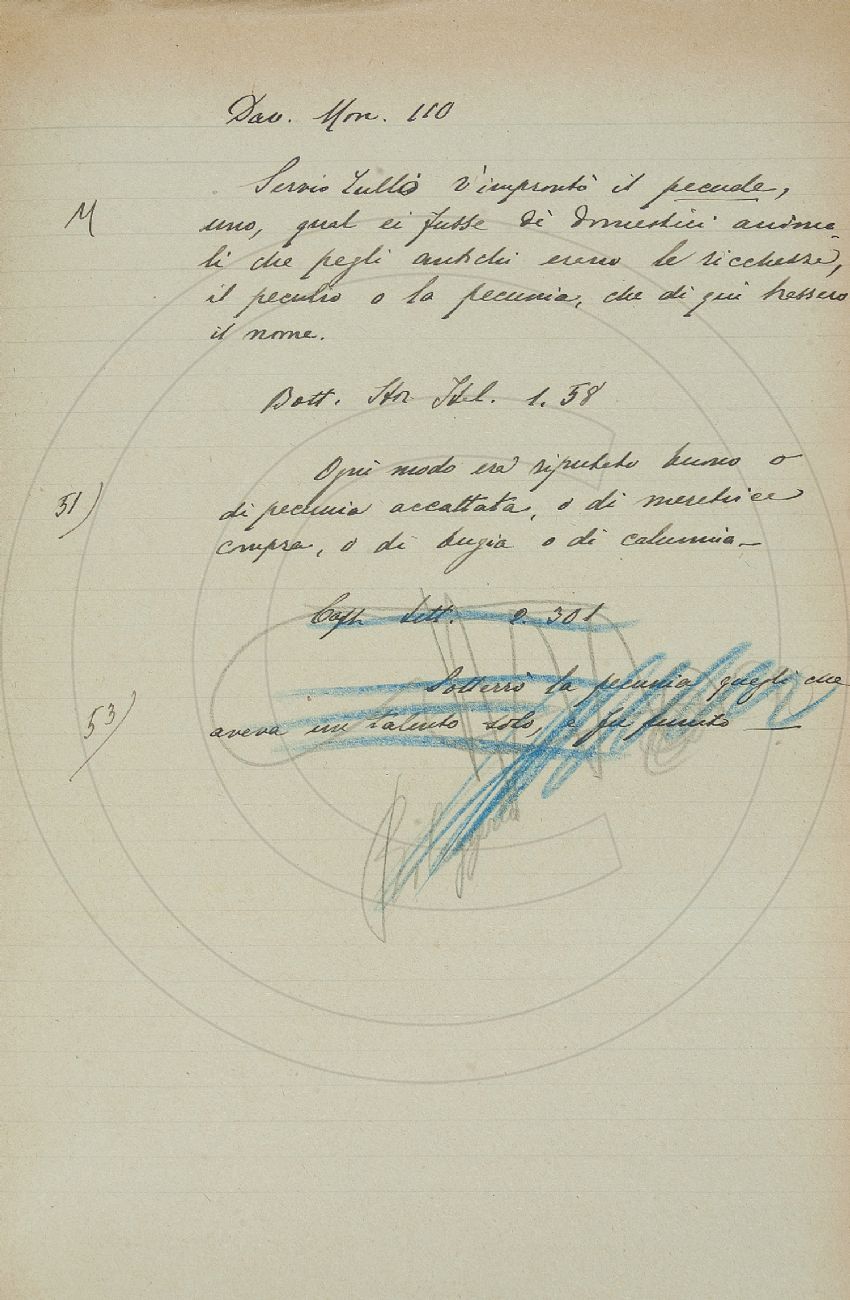 Dav. Mon. 110
Servio Tullio v'improntò il pecude,
M
uno, qual ei fusse di domestici anima-
li che pegli antichi erano le ricchezze,
il peculio o la pecunia, che di qui trassero
il nome.
Bott. Stor. Ital. 1. 58
Ogni modo era riputato buono o
51)
di pecunia accattata, o di meretrice
compra, o di bugia o di calunnia_
Lett. 2. 301
Sotterrò la pecunia quegli che
53)
aveva un talento solo, e fu punito —